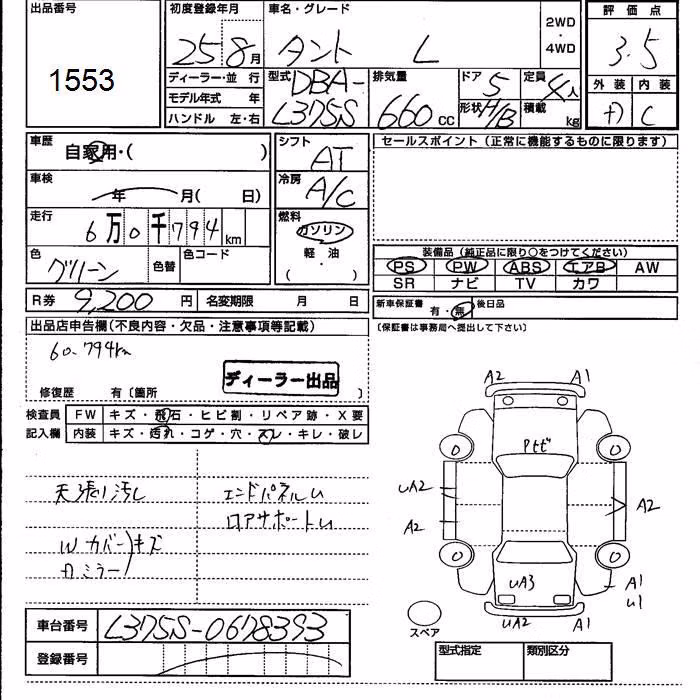 出品番号
1553
初度登録年月
25 8月
車名・グレード
タント L
2WD
・
4WD
評価点
3.5
外装 内装
C
ディーラー・並行
モデル年式 年
ハンドル 左・右
型式 DBA-
L375S
排気量
660 cc
ドア 5
形状 H/B
定員 4人
積載 kg
車歴
自家用・( )
車検
年 月( 日)
走行
6万0千794 km
色
グリーン
色替
色コード
シフト
AT
冷房
A/C
燃料
ガソリン
・
軽油
( ・ )
セールスポイント(正常に機能するものに限ります)
装備品(純正品に限り○をつけてください)
PS PW ABS エアB AW
SR ナビ TV カワ
R券 9,200 円 名変期限 月 日
新車保証書 有・無 後日品
(保証書は事務局へ提出して下さい)
出品店申告欄(不良内容・欠品・注意事項等記載)
60.794km
ディーラー出品
修復歴 有〔箇所 〕
検査員 FW キズ・飛石・ヒビ割・リペア跡・X要
記入欄 内装 キズ・汚れ・コゲ・穴・スレ・キレ・破レ
天張り汚レ
Wカバー キズ
カミラー
エンドパネルU
ロアサポートU
A2 A1
Pセビ
0 0
UA2
A2
A2
0 0
UA3
A1
U1
UA2 A1
スペア
車台番号 L375S-0678393
登録番号
型式指定 類別区分